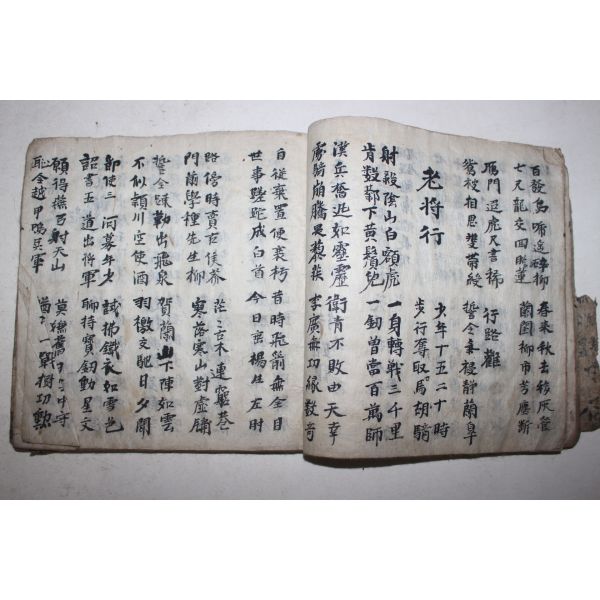 百發烏啼遙碎柳　春來秋去移灰管
七尺龍文回照蓮　蘭閨柳市芳塵斷
雁門迢遞尺書稀　行路難
鴛被相思雙帶緩　誓令氛祲靜蘭皋
老將行　少年十五二十時
步行奪取馬胡騎
射殺陰山白額虎　一身轉戰三千里
肯數鄴下黃鬚兒　一釰曾當百萬師
漢兵奮迅如霹靂　衛青不敗由天幸
虜騎崩騰畏蒺藜　李廣無功緣數奇
自從棄置便衰朽　昔時飛箭無全目
世事蹉跎成白首　今日垂楊生左肘
路傍時賣古侯苽　茫茫古木連窮巷
門前學種先生柳　寥落寒山對虛牖
誓令疎勒出飛泉　賀蘭山下陳如雲
不似潁川空使酒　羽檄交馳日夕聞
節使三河募年少　試拂鐵衣如雪色
詔書五道出將軍　聊持寶釰動星文
願得燕弓射天山　莫嫌舊日雲中守
恥令越甲鳴吳軍　一戰樹功勳